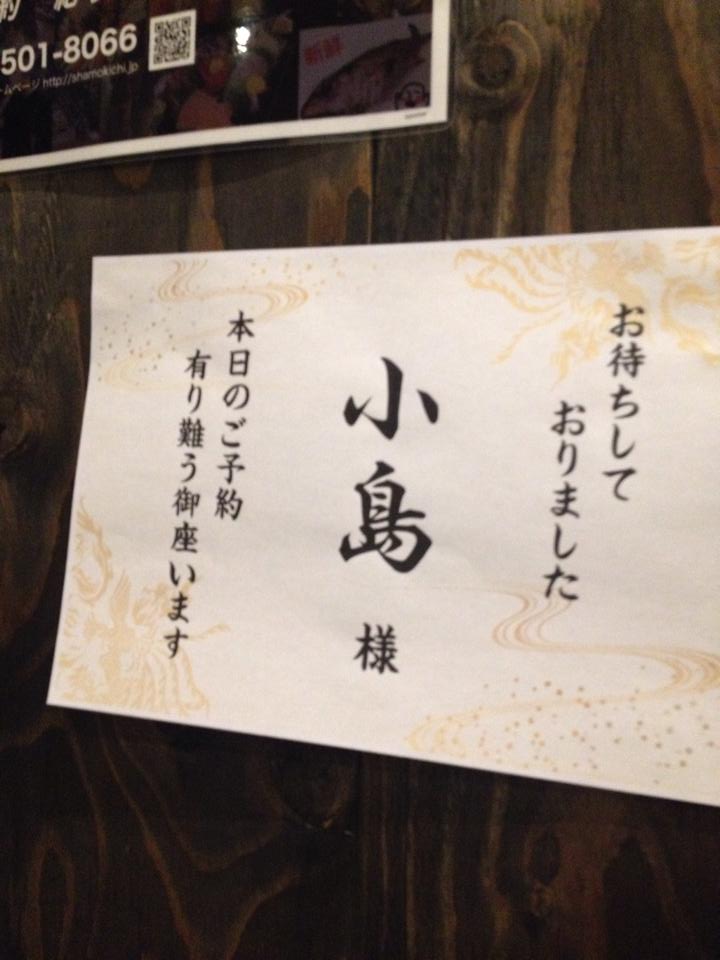 501-8066
ムページ http://shamokichi.jp
新鮮
お待ちして
おりました
小島 様
本日のご予約
有り難う御座います